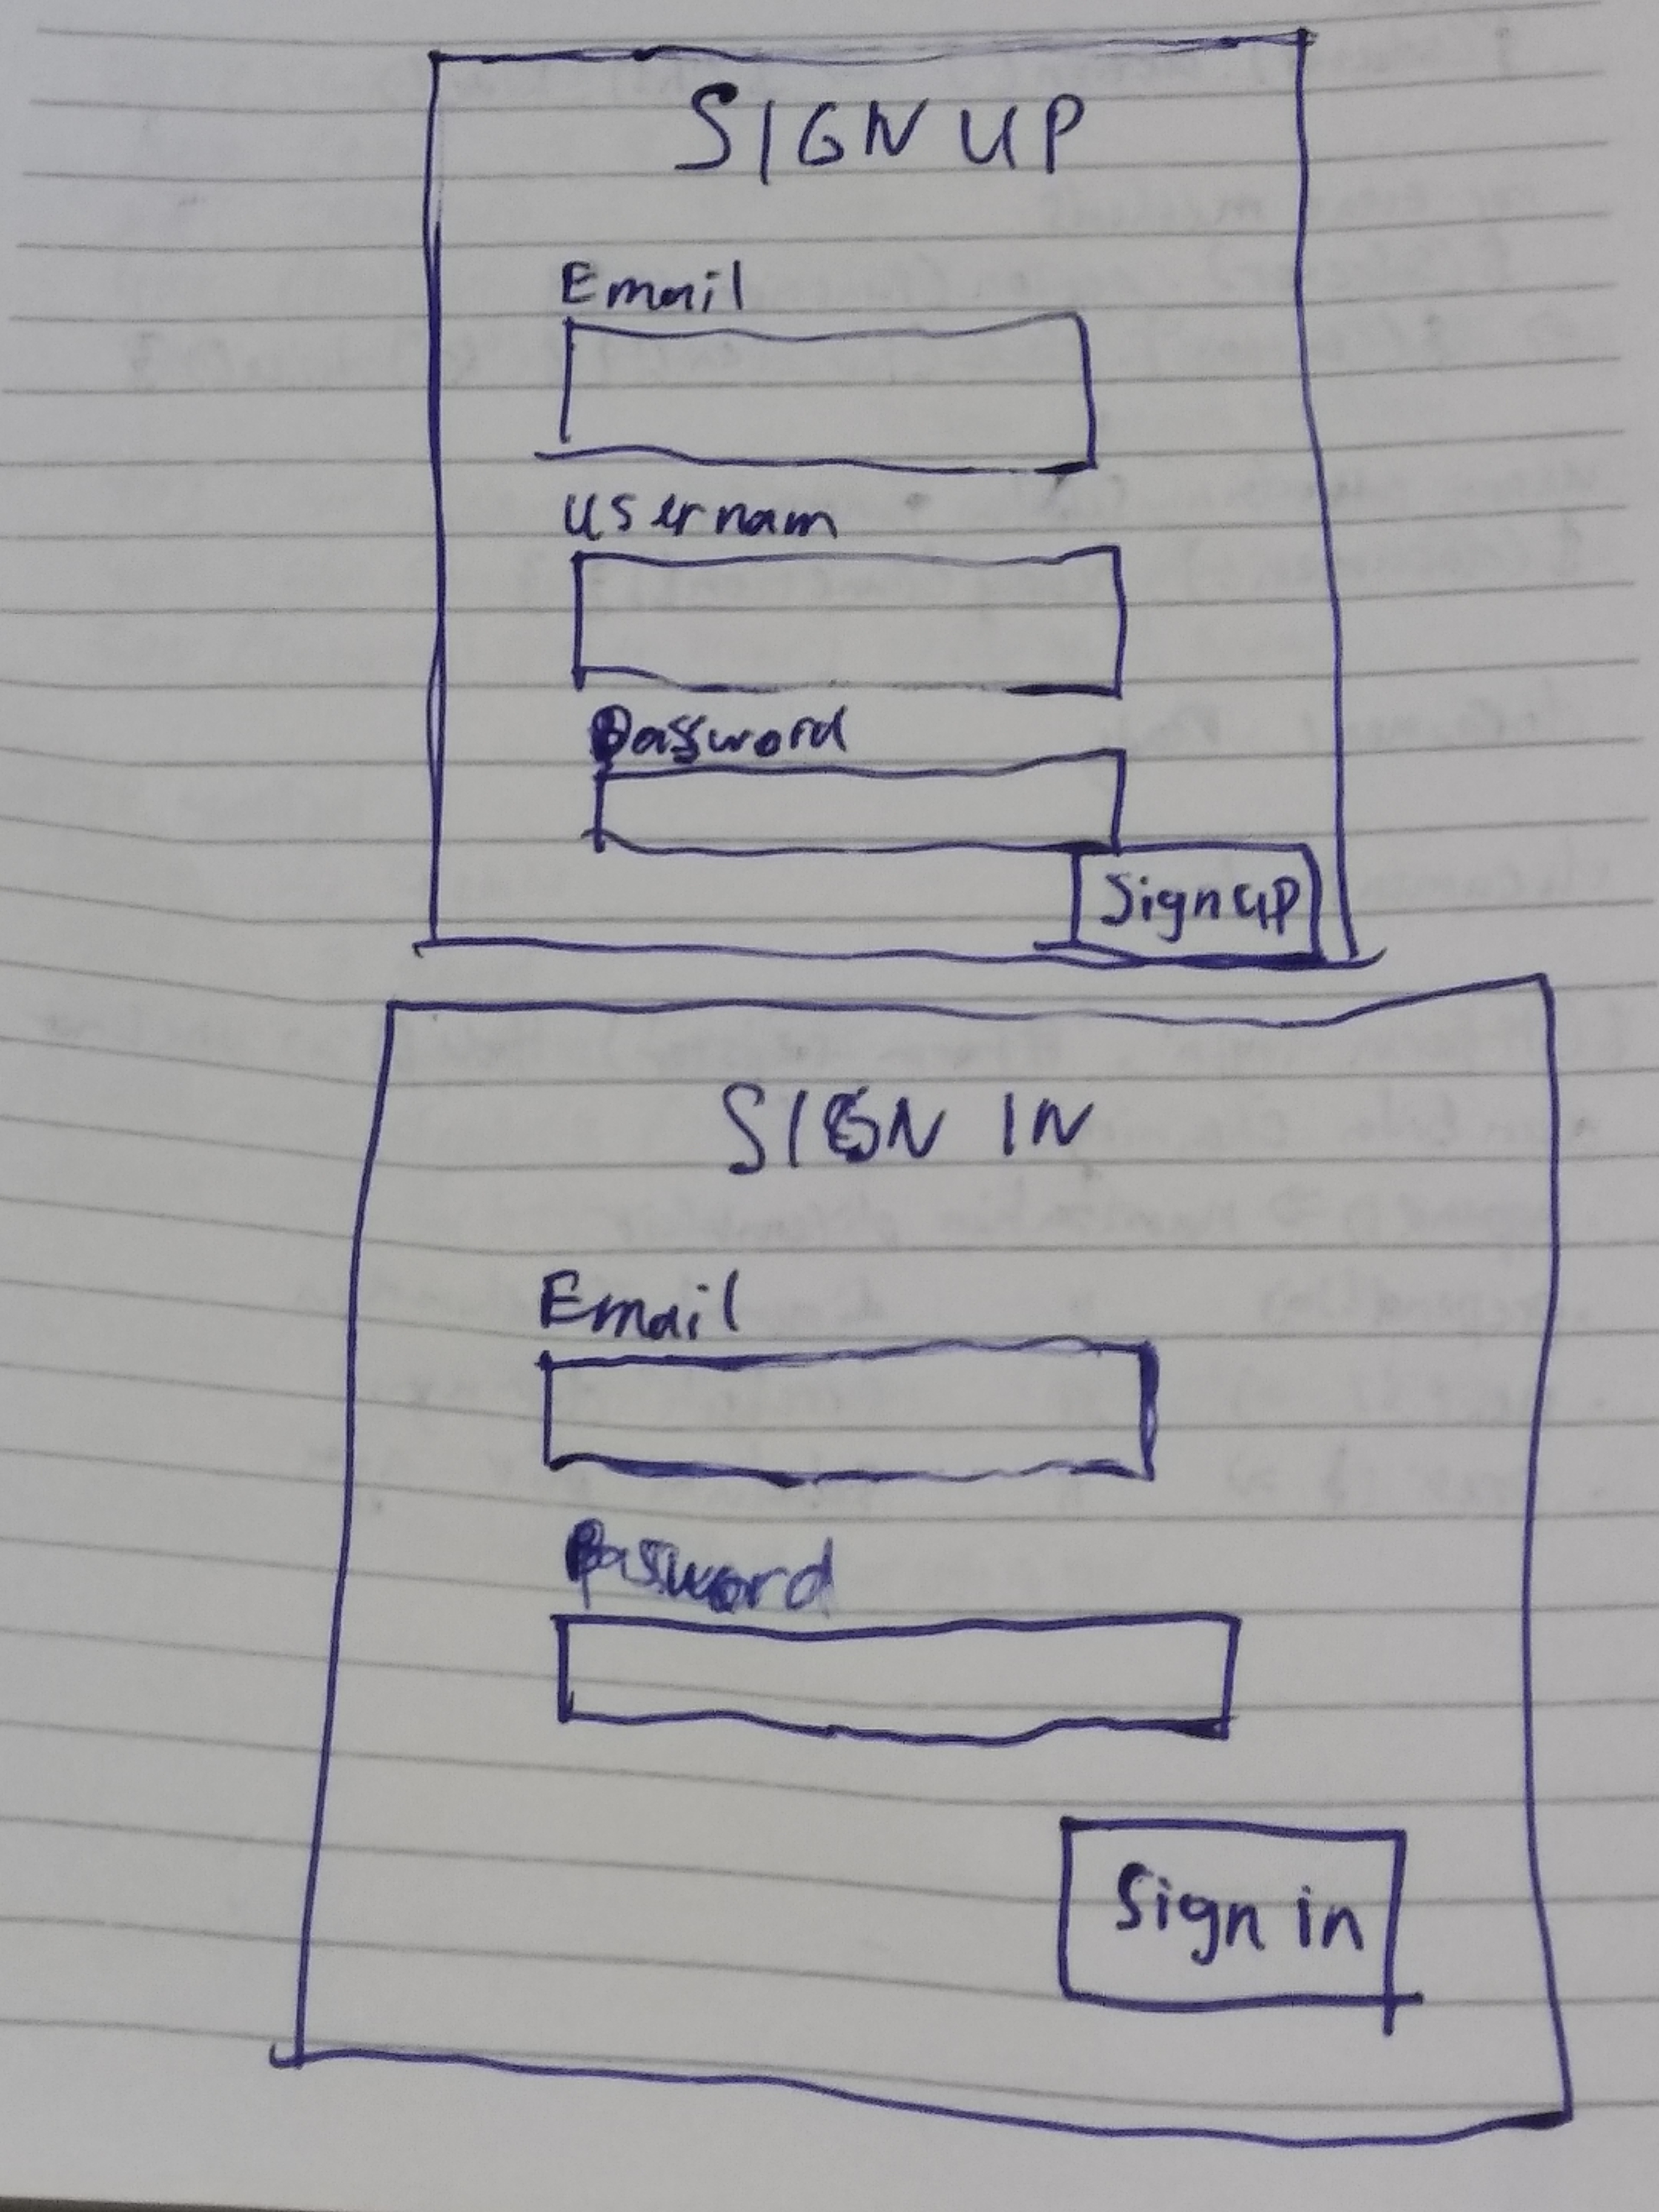 SIGN UP
Email
usernam
Password
Sign up
SIGN IN
Email
Password
Sign in